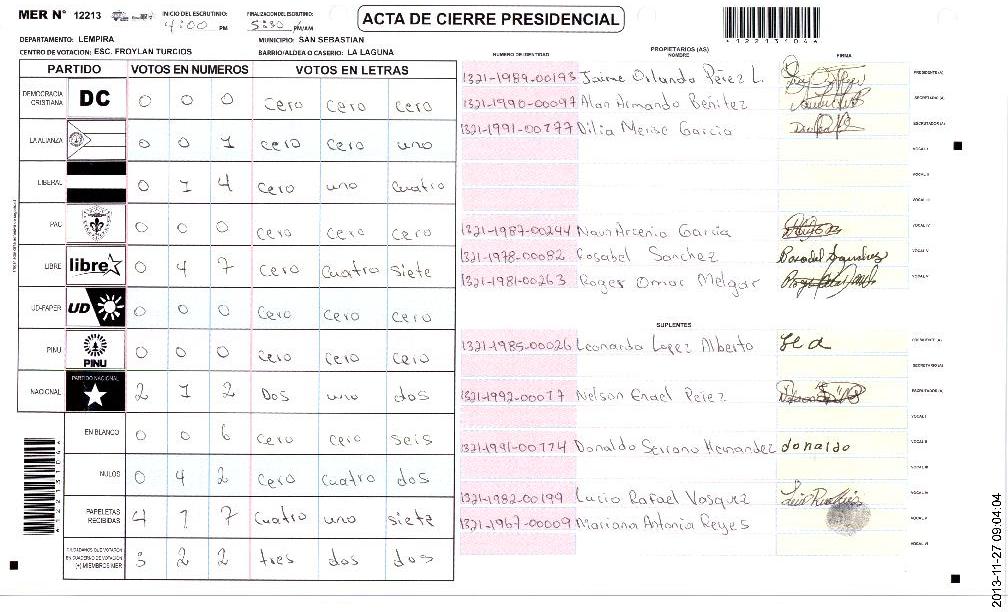 MER N° 12213
INICIO DEL ESCRUTINIO: 4:00 PM
FINALIZACION DEL ESCRUTINIO: 5:30 PM/AM
ACTA DE CIERRE PRESIDENCIAL
122131046
DEPARTAMENTO: LEMPIRA
MUNICIPIO: SAN SEBASTIAN
CENTRO DE VOTACION: ESC. FROYLAN TURCIOS
BARRIO/ALDEA O CASERIO: LA LAGUNA
PARTIDO VOTOS EN NUMEROS VOTOS EN LETRAS
DEMOCRACIA CRISTIANA DC 0 0 0 cero cero cero
LA ALIANZA 0 0 1 cero cero uno
LIBERAL 0 1 4 cero uno cuatro
PAC 0 0 0 cero cero cero
LIBRE libre 0 4 7 cero cuatro siete
UD-FAPER UD 0 0 0 cero cero cero
PINU PINU 0 0 0 cero cero cero
NACIONAL PARTIDO NACIONAL 2 1 2 Dos uno dos
EN BLANCO 0 0 6 cero cero seis
NULOS 0 4 2 cero cuatro dos
PAPELETAS RECIBIDAS 4 1 7 cuatro uno siete
CIUDADANOS QUE VOTARON EN CUADERNO DE VOTACION (+) MIEMBROS MER 3 2 2 tres dos dos
PROPIETARIOS (AS)
NUMERO DE IDENTIDAD NOMBRE FIRMA
1321-1989-00193 Jaime Orlando Pérez L. PRESIDENTE (A)
1321-1990-00097 Alan Armando Benitez SECRETARIO (A)
1321-1991-00177 Dilia Merise Garcia ESCRUTADOR (A)
VOCAL I
VOCAL II
VOCAL III
1321-1987-00244 Naun Arcenio Garcia VOCAL IV
1321-1978-00082 Rosabel Sanchez VOCAL V
1321-1981-00263 Roger Omar Melgar
SUPLENTES
1321-1985-00026 Leonardo Lopez Alberto PRESIDENTE (A)
SECRETARIO (A)
1321-1992-00077 Nelson Enael Perez ESCRUTADOR (A)
VOCAL I
1321-1991-00174 Donaldo Serrano Hernandez donaldo VOCAL II
VOCAL III
1321-1982-00199 Lucio Rafael Vasquez VOCAL IV
1321-1967-00009 Mariana Antonia Reyes VOCAL V
VOCAL VI
2013-11-27 09:04:04